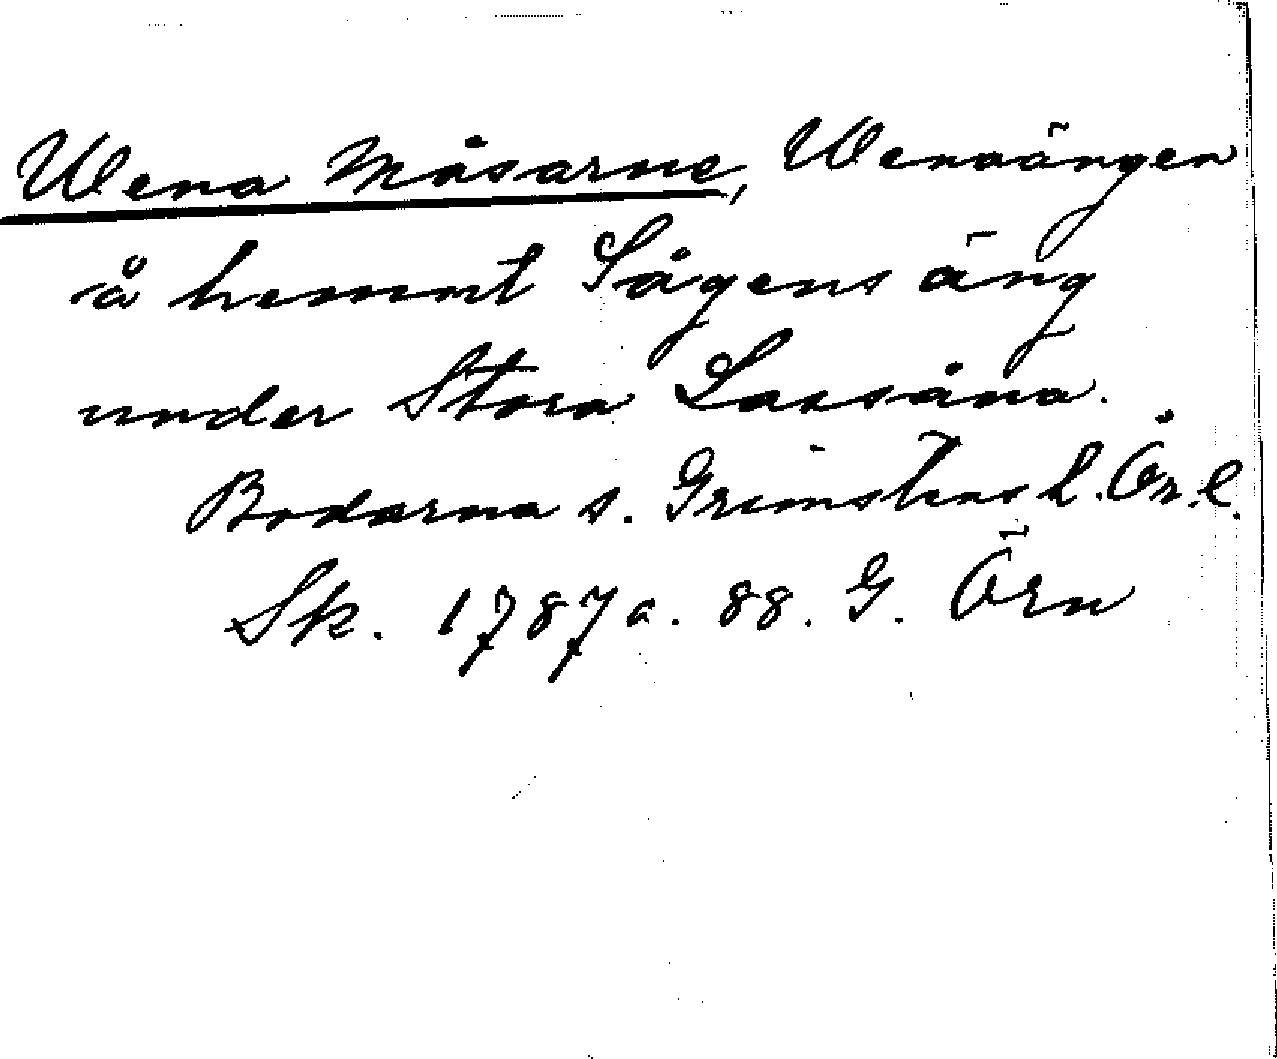 Wena Måsarne, Wenaängen
å hemmt Sågens äng
under Stora Laxsåna.
Bodarna s. Grimstens h. Ör. l.
Sk. 1787 a. 88. G. Örn